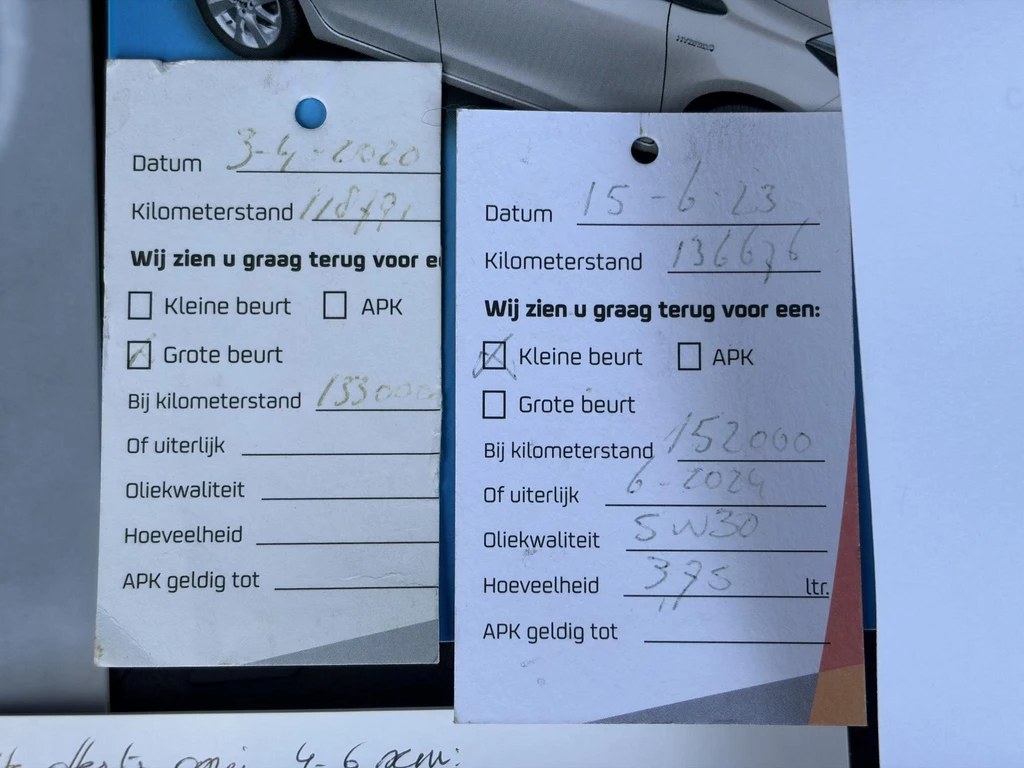 HYBRID
Datum 3-4-2020
Kilometerstand
Wij zien u graag terug voor e
Kleine beurt APK
Grote beurt
Bij kilometerstand 133000
Of uiterlijk
Oliekwaliteit
Hoeveelheid
APK geldig tot
Datum 15-6-23
Kilometerstand 136676
Wij zien u graag terug voor een:
Kleine beurt APK
Grote beurt
Bij kilometerstand 152000
Of uiterlijk 6-2024
Oliekwaliteit 5W30
Hoeveelheid 3,75 ltr.
APK geldig tot
4-6